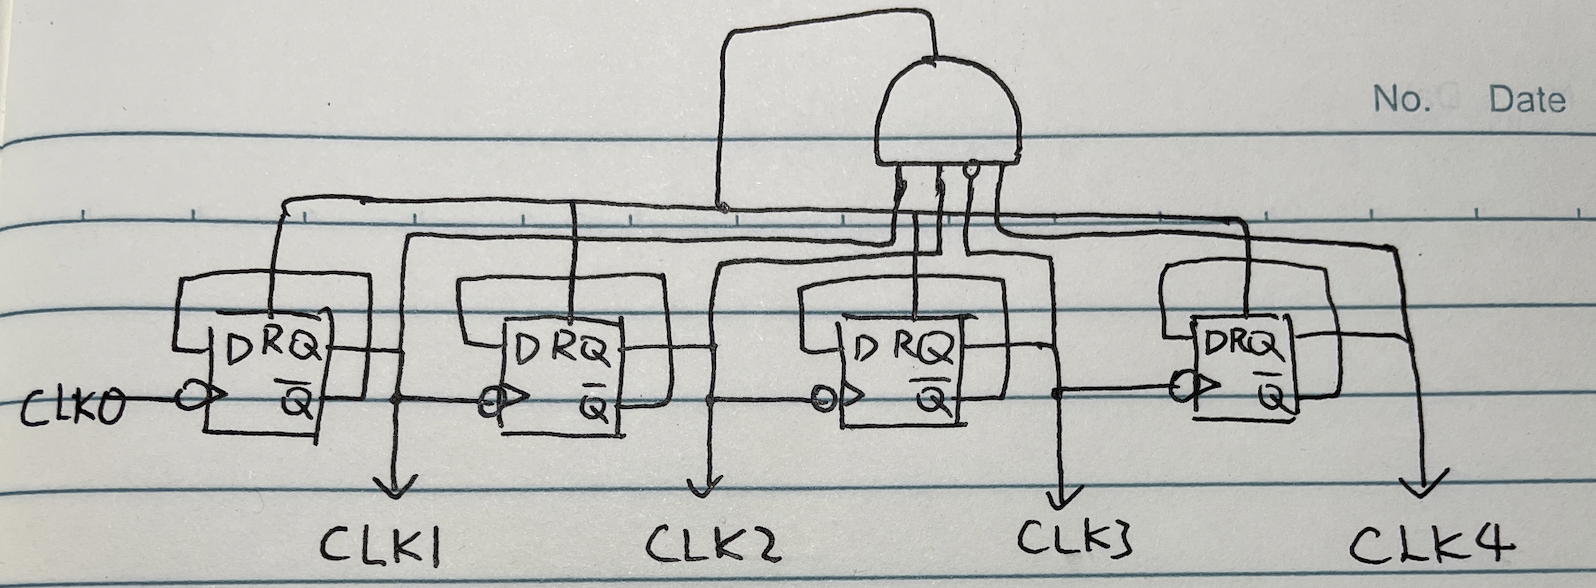 No. Date
D R Q D R Q D R Q D R Q
CLK0 Q̅ Q̅ Q̅ Q̅
CLK1 CLK2 CLK3 CLK4